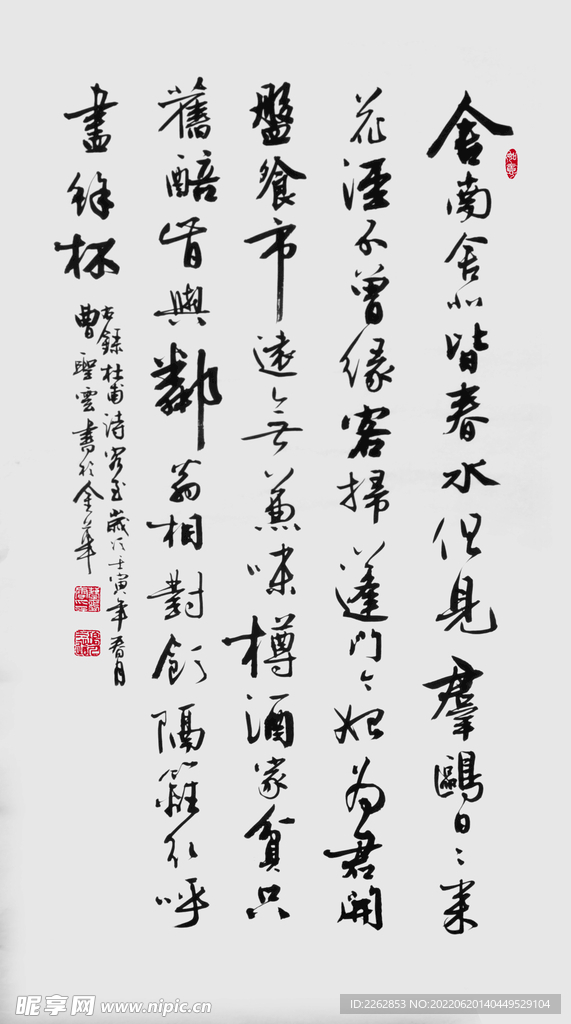 舍南舍北皆春水但見羣鷗日〻来
花逕不曾緣客掃蓬門今始為君開
盤飧市遠無兼味樽酒家貧只
舊醅肯與鄰翁相對飲隔籬呼
盡餘杯
右錄杜甫詩客至歲次壬寅年春月
曹聖雲書於金華
昵享网 www.nipic.cn
ID:2262853 NO:20220620140449529104